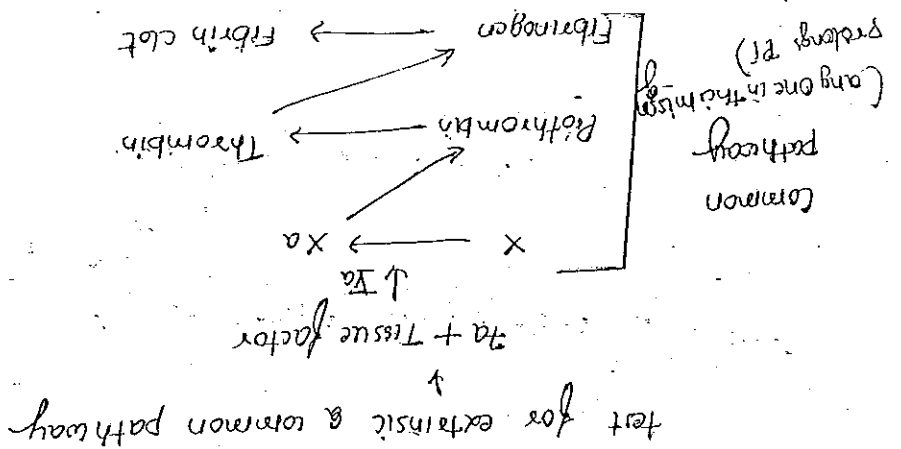 test for extrinsic & common pathway
↓
7a + Tissue factor
↓ Va
X → Xa
Common
pathway
(any one is missing
prolongs PT)
Prothrombin → Thrombin
Fibrinogen → Fibrin clot